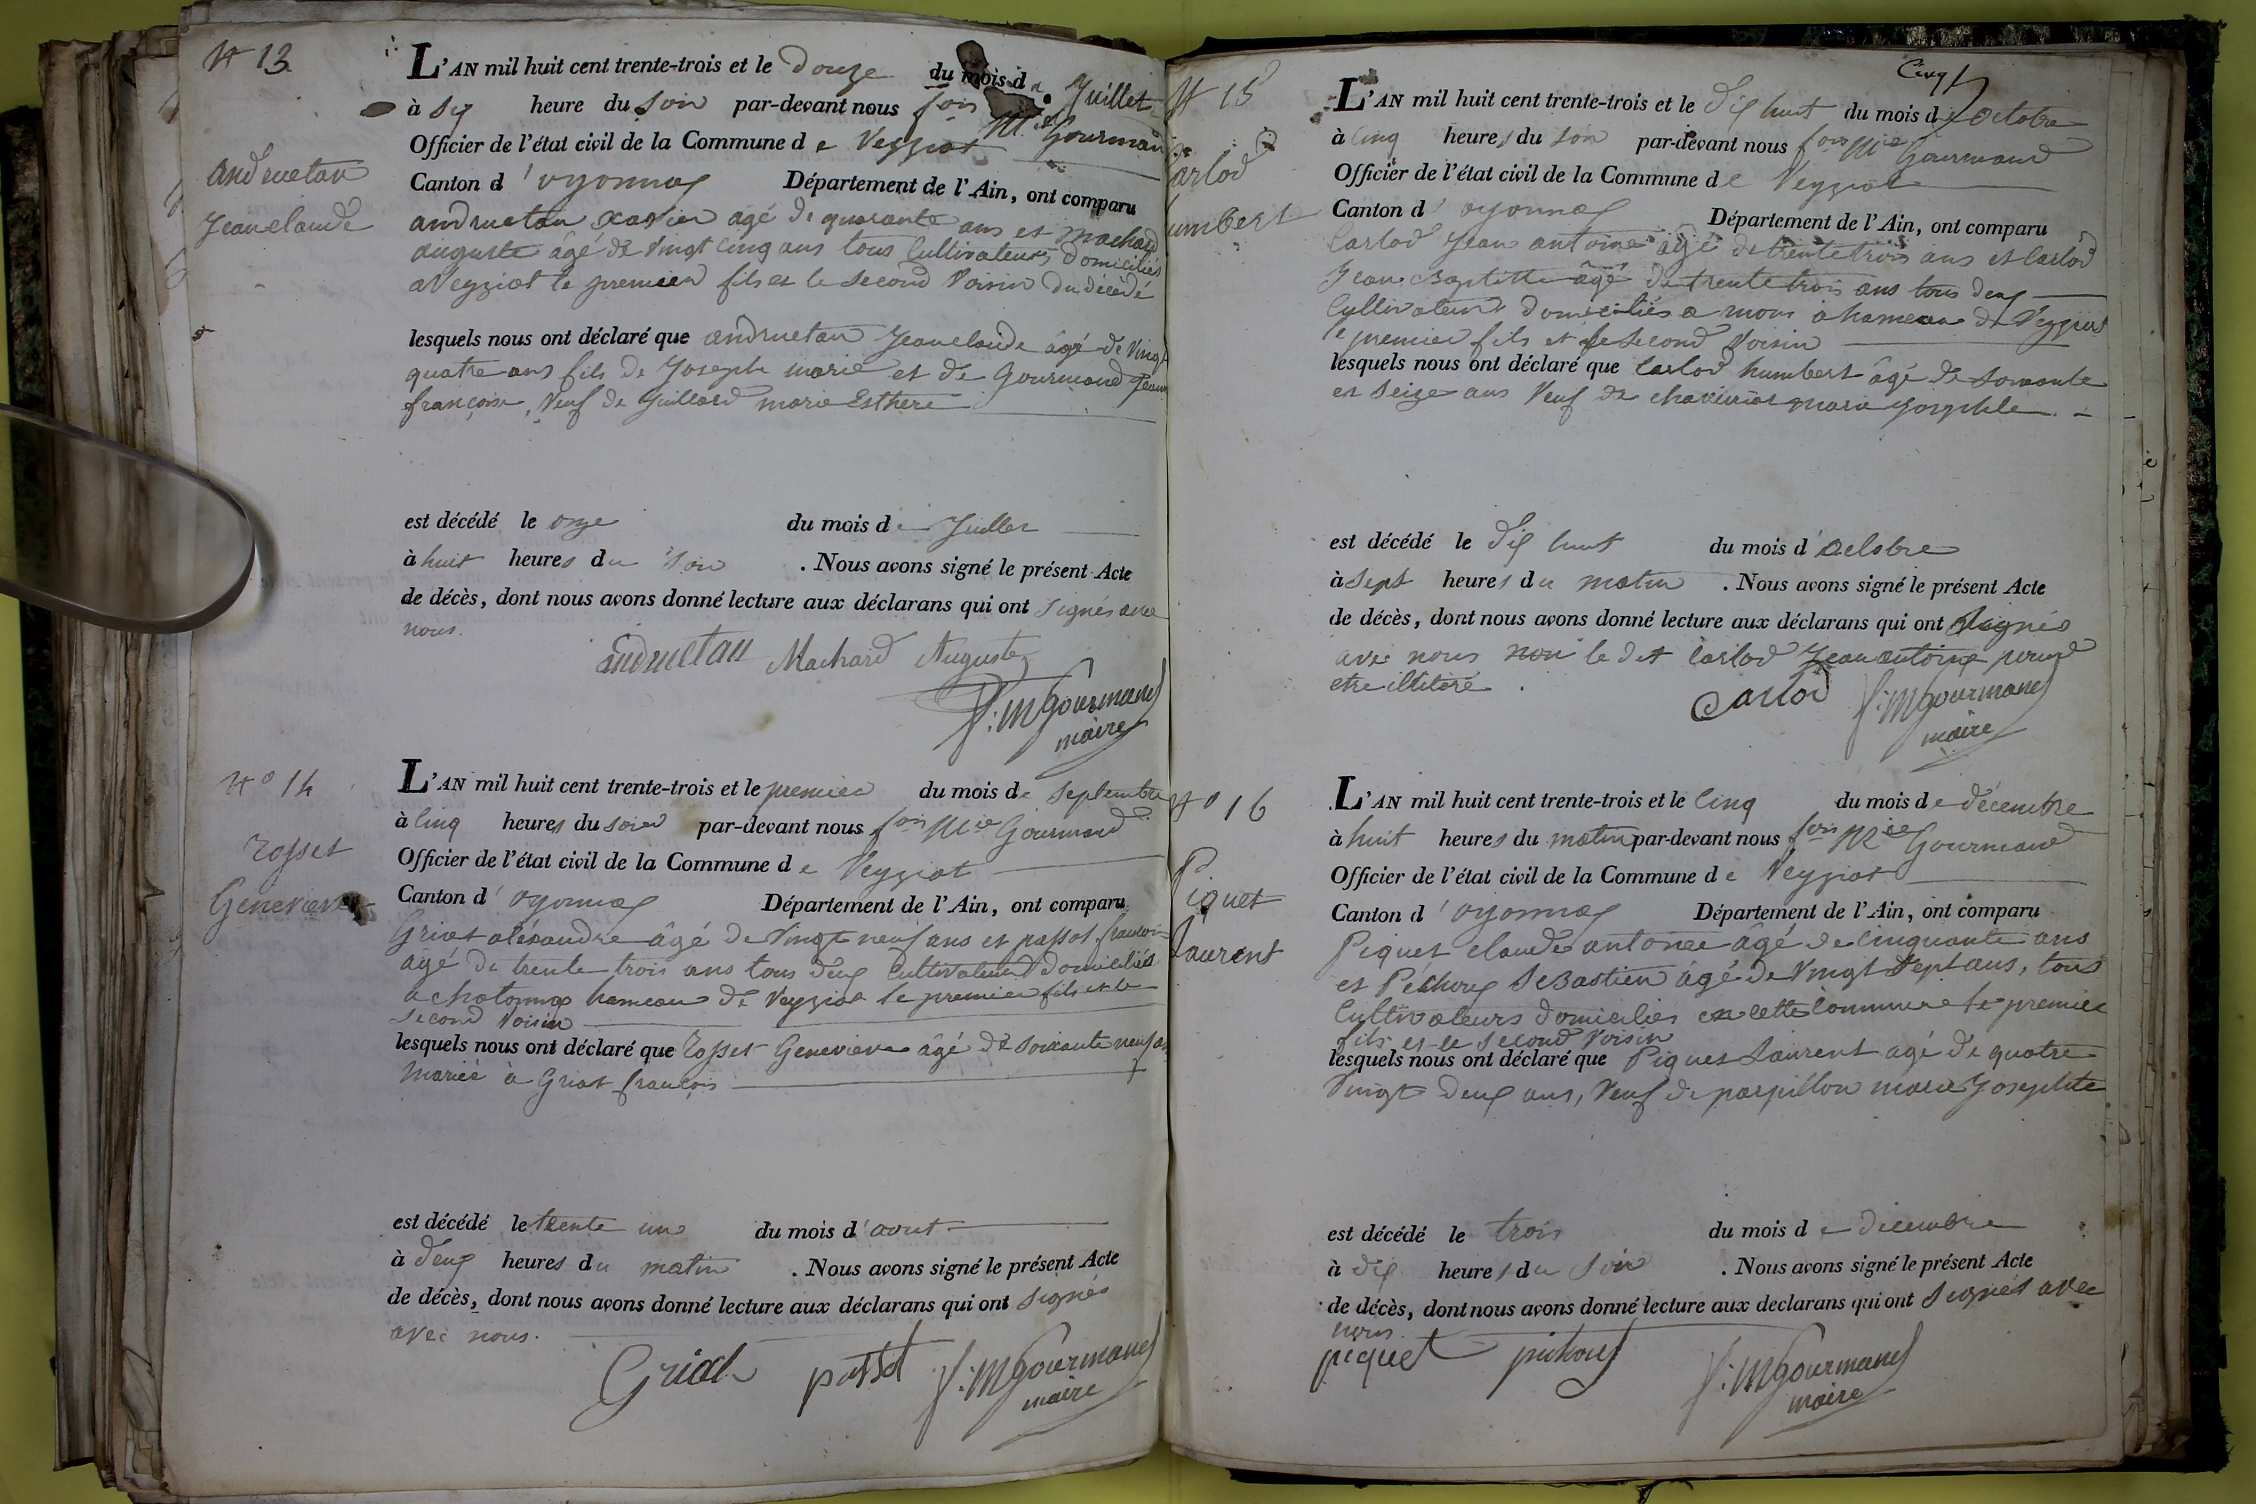 N° 13
andruetan
Jeanclaude
L'AN mil huit cent trente-trois et le douze du mois de Juillet
à six heure du soir par-devant nous fois Mie Gourmand
Officier de l'état civil de la Commune de Veyziat
Canton d'oyonnax Département de l'Ain, ont comparu
andruetan xavier agé de quarante ans et Machard
auguste âgé de vingt cinq ans tous Cultivateurs domiciliés
a Veyziat le premier fils et le second Voisin du décédé
lesquels nous ont déclaré que andruetan Jeanclaude âgé de Vingt
quatre ans fils de Joseph marie et de Gourmand Jeanne
françoise, Veuf de Guillard marie Esthere
est décédé le onze du mois de Juillet
à huit heures du soir . Nous avons signé le présent Acte
de décès, dont nous avons donné lecture aux déclarans qui ont signés avec
nous.
andruetan Machard Auguste
f: M Gourmand
maire
N° 14
Rosset
Genevieve
L'AN mil huit cent trente-trois et le premier du mois de Septembre
à cinq heures du soir par-devant nous fois Mie Gourmand
Officier de l'état civil de la Commune de Veyziat
Canton d'oyonnax Département de l'Ain, ont comparu
Griot aléxandre âgé de Vingt neuf ans et passot françois
agé de trente trois ans tous deux Cultivateurs domiciliés
a chatonnax hameau de Veyziat le premier fils et le
second Voisin
lesquels nous ont déclaré que Rosset Genevieve âgé de soixante neuf ans
Mariée à Griot françois
est décédé le trente un du mois d'aout
à deux heures du matin . Nous avons signé le présent Acte
de décès, dont nous avons donné lecture aux déclarans qui ont signés
avec nous.
Griot passot f: M Gourmand
maire
Cinq
N° 15
Carlod
humbert
L'AN mil huit cent trente-trois et le dix huit du mois d'octobre
à cinq heures du soir par-devant nous fois Mie Gourmand
Officier de l'état civil de la Commune de Veyziat
Canton d'oyonnax Département de l'Ain, ont comparu
Carlod Jean antoine âgé de trente trois ans et Carlod
Jean Baptiste agé de trente trois ans tous deux
Cultivateurs domiciliés a mons hameau de Veyziat
le premier fils et le second Voisin
lesquels nous ont déclaré que Carlod humbert âgé de soixante
et seize ans Veuf de marie Josephte
est décédé le dix huit du mois d'octobre
à sept heures du matin . Nous avons signé le présent Acte
de décès, dont nous avons donné lecture aux déclarans qui ont signés
avec nous non le dit Carlod Jean antoine pour
etre illitéré
Carlod f: M Gourmand
maire
N° 16
Piquet
Laurent
L'AN mil huit cent trente-trois et le cinq du mois de décembre
à huit heures du matin par-devant nous fois Mie Gourmand
Officier de l'état civil de la Commune de Veyziat
Canton d'oyonnax Département de l'Ain, ont comparu
Piquet claude antoine âgé de cinquante ans
et Péchoux Sebastien âgé de Vingt Sept ans, tous
Cultivateurs domiciliés en cette Commune le premier
fils et le second Voisin
lesquels nous ont déclaré que Piquet Laurent agé de quatre
Vingt deux ans, Veuf de parpillon marie Josephte
est décédé le trois du mois de décembre
à dix heures du soir . Nous avons signé le présent Acte
de décès, dont nous avons donné lecture aux declarans qui ont signés avec
nous.
piquet pichoux f: M Gourmand
maire